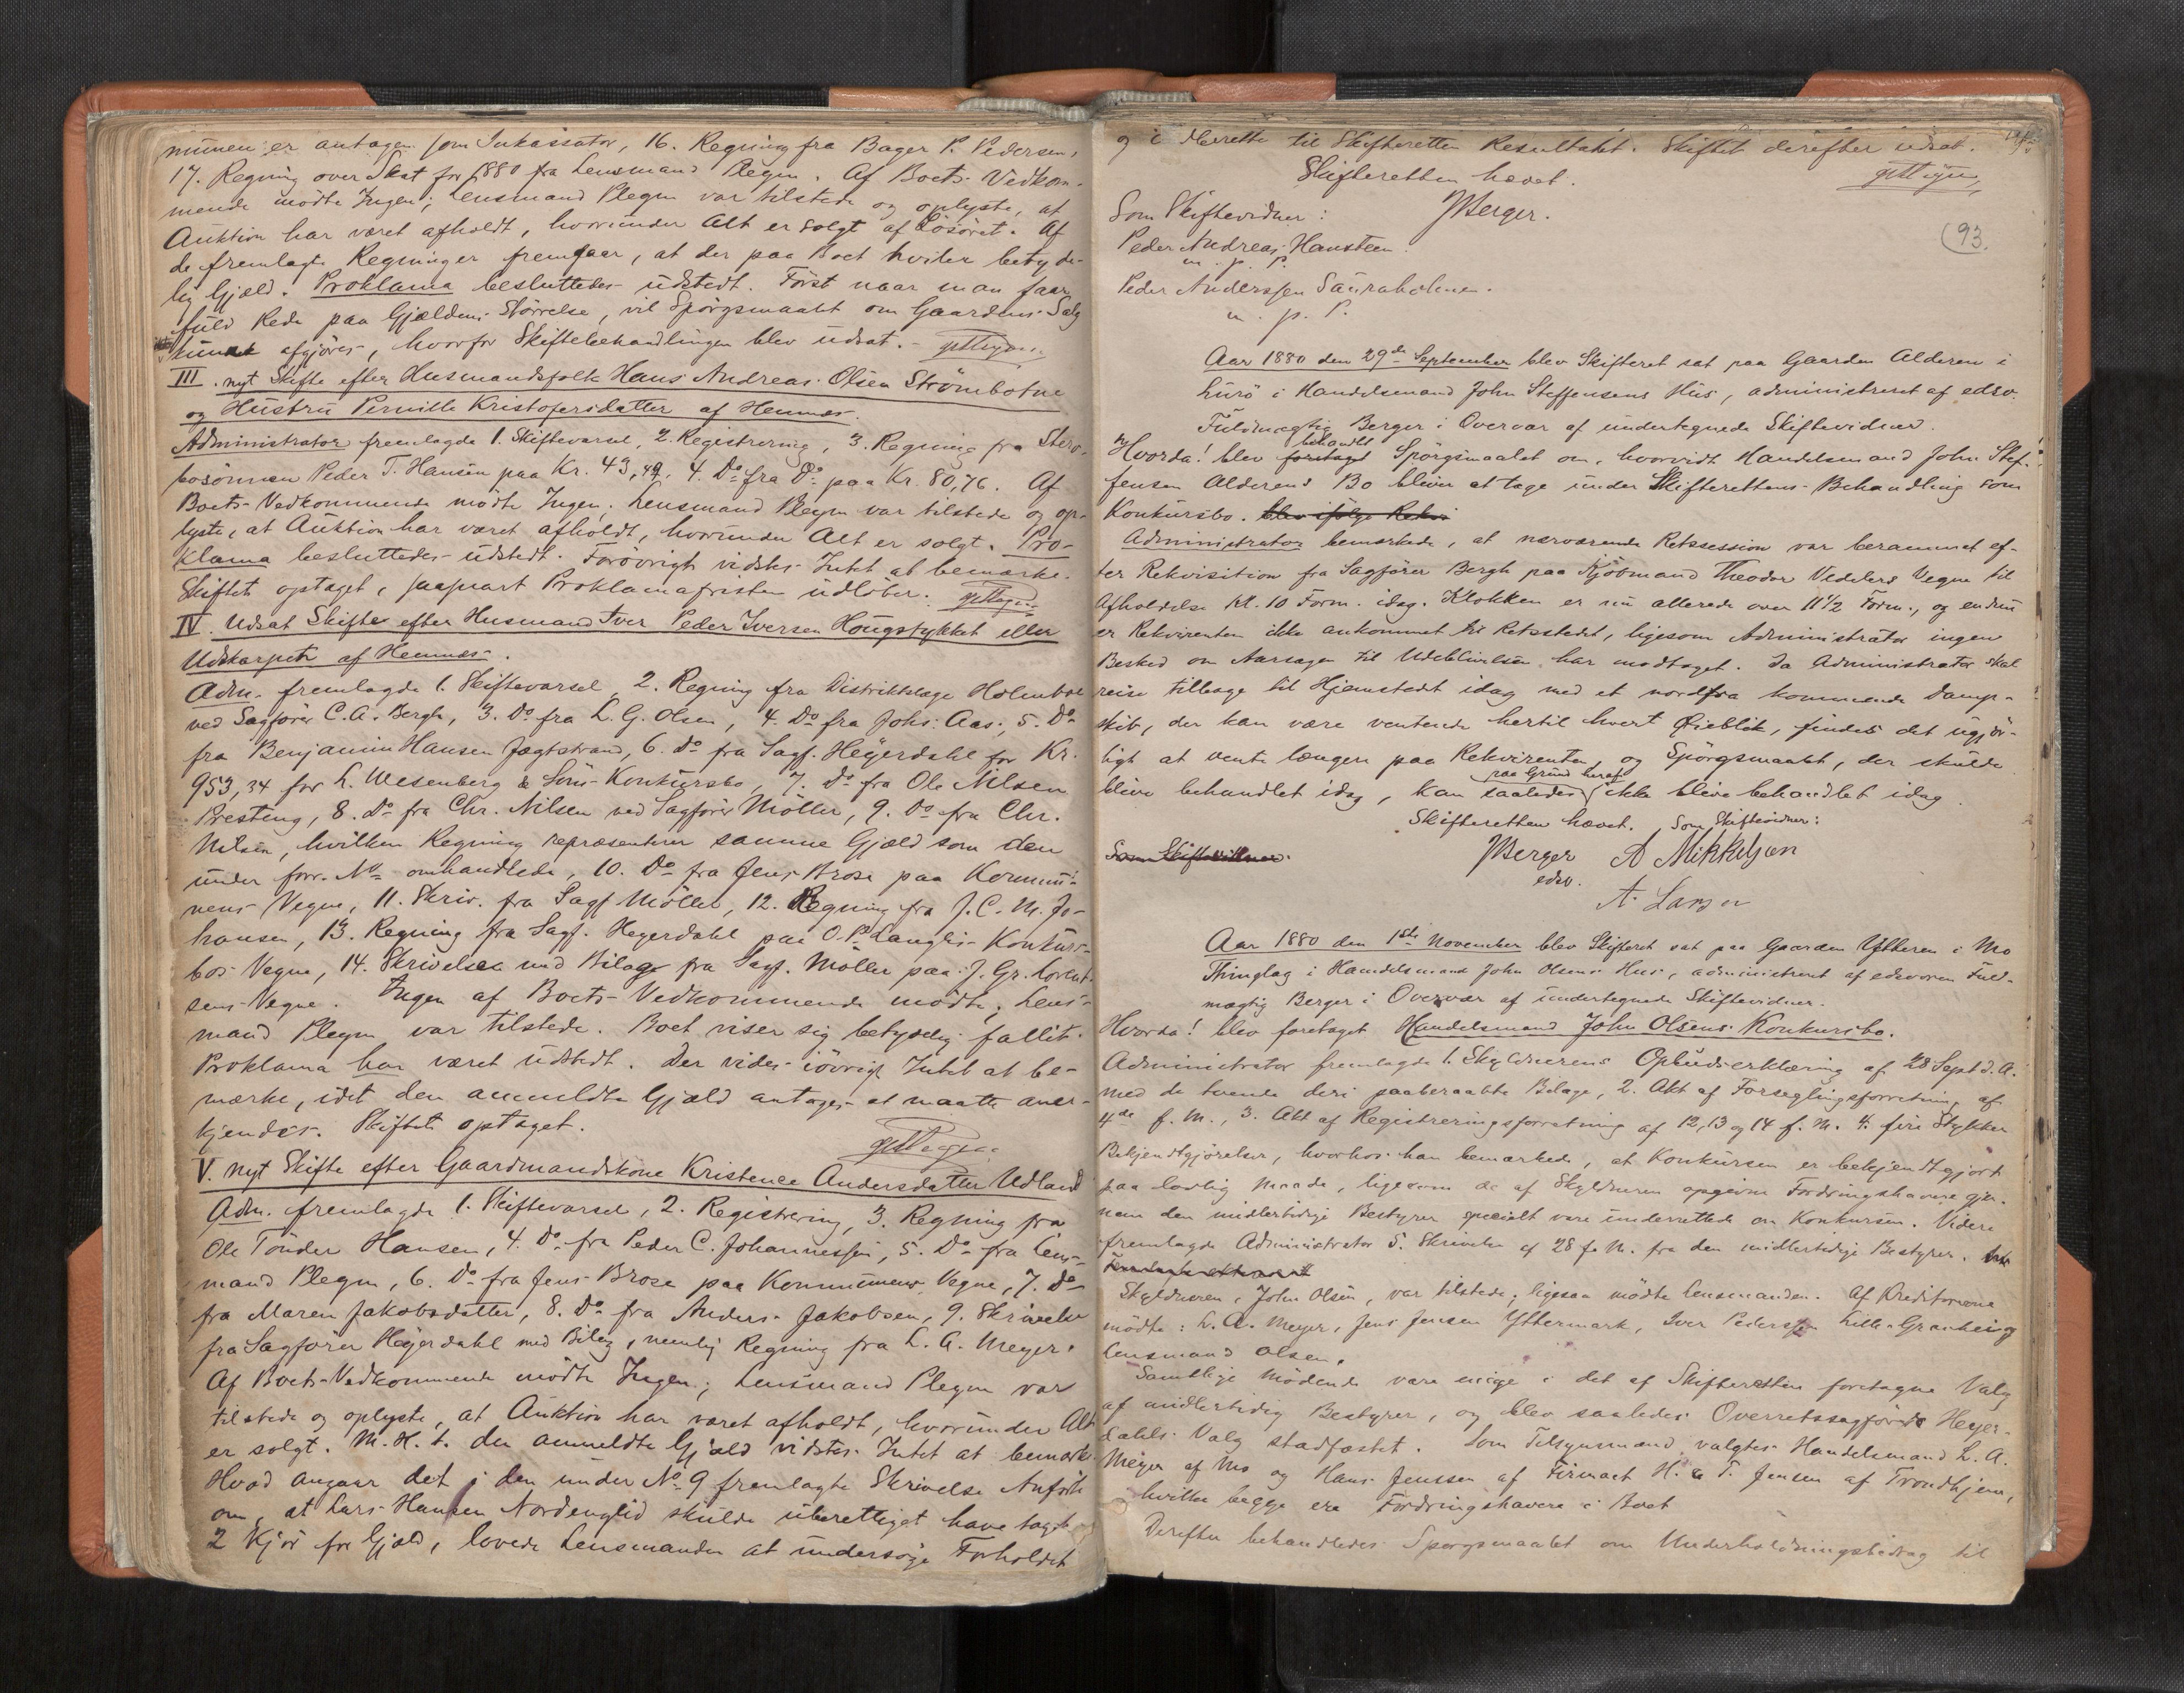 munen er antagen som Inkassator, 16. Regning fra Bager P. Pedersen,
17. Regning over Skat for 1880 fra Lensmand Plegen. Af Boets Vedkom-
mende mödte Ingen; Lensmand Plegen var tilstede og oplyste, at
Auktion har været afholdt, hvorunder Alt er solgt af Lösöret. Af
de fremlagte Regninger fremgaar, at der paa Boet hviler betyde-
lig Gjæld. Proklama besluttedes udstedt. Först naar man faar
fuld Rede paa Gjældens Störrelse, vil Spörgsmaalet om Gaardens Salg
afgjöres, hvorfor Skiftebehandlingen blev udsat.
III. nyt Skifte efter Husmandsfolk Hans Andreas Olsen Strömbotne
og Hustru Pernille Kristofersdatter af Hemnes.
Administrator fremlagde 1. Skiftevarsel, 2. Registrering, 3. Regning fra Stero-
bosönnen Peder T. Hansen paa Kr. 43,49, 4. Do fra Do paa Kr. 80,76. Af
Boets Vedkommende mödte Ingen. Lensmand Plegen var tilstede og op-
lyste, at Auktion har været afholdt, hvorunder Alt er solgt. Pro-
klama besluttedes udstedt. Forövrigt vidstes Intet at bemærke.
Skiftet optaget, saasnart Proklamafristen udlöber.
IV. Udsat Skifte efter Husmand Iver Peder Iversen Hougstykket eller
Udskarpen af Hemnes.
Adm. fremlagde 1. Skiftevarsel, 2. Regning fra Distriktslæge Holmboe
ved Sagförer C. A. Bergh, 3. Do fra L. G. Olsen, 4. Do fra Johs: Aas, 5. Do
fra Benjamin Hansen Jægtstrand, 6. do fra Sagf. Heyerdahl for Kr.
953,34 for L. Wesenberg & Söns Konkursbo, 7. Do fra Ole Nilsen
Presteng, 8. Do fra Chr. Nilsen ved Sagförer Möller, 9. Do fra Chr.
Nilsen, hvilken Regning repræsenterer samme Gjæld som den
under forr. No omhandlede, 10. Do fra Jens Brose paa Kommu-
nens Vegne, 11. Skriv. fra Sagf Möller, 12. Regning fra J. C. M. Jo-
hansen, 13. Regning fra Sagf. Heyerdahl paa O. P. Langlis Konkurs-
bos Vegne, 14. Skrivelse med Bilage fra Sagf. Möller paa J. Gr. Lorent-
sens Vegne. Ingen af Boets Vedkommende mödte. Lens-
mand Plegen var tilstede. Boet viser sig betydelig fallit.
Proklama har været udstedt. Der vides iövrigt Intet at be-
mærke, idet den anmeldte Gjæld antages at maatte aner-
kjendes. Skiftet optaget.
V. nyt Skifte efter Gaardmandskone Kristence Andersdatter Udland
Adm. fremlagde 1. Skiftevarsel, 2. Registrering, 3. Regning fra
Ole Tönder Hansen, 4. Do fra Peder C. Johannessen, 5. Do fra Lens-
mand Plegen, 6. Do fra Jens Brose paa Kommunens Vegne, 7. do
fra Maren Jakobsdatter, 8. Do fra Anders Jakobsen, 9. Skrivelse
fra Sagförer Heyerdahl med Bilag, nemlig Regning fra L. A. Meyer.
Af Boets Vedkommende mödte Ingen; Lensmand Plegen var
tilstede og oplyste, at Auktion har været afholdt, hvorunder Alt
er solgt. M. H. t. den anmeldte Gjæld vidstes Intet at bemærke.
Hvad angaar det i den under No 9 fremlagte Skrivelse Anförte
om, at Lars Hansen Nordenglid skulde uberettiget have taget
2 Kjör for Gjæld, lovede Lensmanden at undersöge Forholdet
og i Herette til Skifteretten Resultatet. Skiftet derefter udsat.
Skifteretten hævet.
Som Skiftevidner: JBerger.
93.
Peder Andreas Hansteen
m. p. P.
Peder Anderssen Sauraholmen.
m. p. P.
Aar 1880 den 29de September blev Skifteret sat paa Gaarden Alderen i
Lurö i Handelsmand John Steffensens Hus, administreret af edsv.
Fuldmægtig Berger i Overvær af undertegnede Skiftevidner.
Hvorda! blev foretaget behandlet Spörgsmaalet om, hvorvidt Handelsmand John Stef-
fensen Alderens Bo bliver at tage under Skifterettens Behandling som
Konkursbo. blev ifölge Rekvi
Administrator bemærkede, at nærværende Retssession var berammet ef-
ter Rekvisition fra Sagförer Bergh paa Kjöbmand Theodor Vedelers Vegne til
Afholdelse Kl. 10 Form. idag. Klokken er nu allerede over 11 1/2 Form., og endnu
er Rekvirenten ikke ankommet til Retsstedet, ligesom Administrator ingen
Besked om Aarsagen til Udeblivelsen har modtaget. Da Administrator skal
reise tilbage til Hjemstedet idag med et nordfra kommende Damp-
skib, der kan være ventende hertil hvert Öieblik, findes det ugjör-
ligt at vente længere paa Rekvirenten, og Spörgsmaalet, der skulde
blive behandlet idag, kan saaledes paa Grund heraf ikke blive behandlet idag.
Skifteretten hævet. Som Skiftevidner:
Som Skiftevidner: JBerger A Mikkelsen
edsv.
A. Larsen
Aar 1880 den 1ste November blev Skifteret sat paa Gaarden Ytteren i Mo
Thinglag i Handelsmand John Olsens Hus, administreret af edsvoren Fuld-
mægtig Berger i Overvær af undertegnede Skiftevidner.
Hvorda! blev foretaget Handelsmand John Olsens Konkursbo.
Administrator fremlagde 1. Skyldnerens Opbudserklæring af 28 Sept d. A.
med de tvende deri paaberaabte Bilage, 2. Akt af Forseglingsforretning af
4de f. M., 3. Akt af Registreringsforretning af 12, 13 og 14 f. M. 4. fire Stykker
Bekjendtgjörelser, hvorhos han bemærkede, at Konkursen er bekjendtgjort
paa lovlig Maade, ligesom de af Skyldneren opgivne Fordringshavere gjen-
nem den midlertidige Bestyrer specielt vare underrettede om Konkursen. Videre
fremlagde Administrator 5. Skrivelse af 28 f. M. fra den midlertidige Bestyrer.
Skyldneren, John Olsen, var tilstede; ligesaa mödte Lensmanden. Af Kreditorerne
mödte: L. A. Meyer, Jens Jensen Yttermark, Iver Pederssen Lille-Granhei og
Lensmand Olsen.
Samtlige Mödende vare enige i det af Skifteretten foretagne Valg
af midlertidig Bestyrer, og blev saaledes Overretssagförer Heyer-
dahls Valg stadfæstet. Som Tilsynsmænd valgtes Handelsmand L. A.
Meyer af Mo og Hans Jenssen af Firmaet H. & T. Jensen af Trondhjem,
hvilke begge ere Fordringshavere i Boet
Derefter behandledes Spörgsmaalet om Underholdningsbidrag til